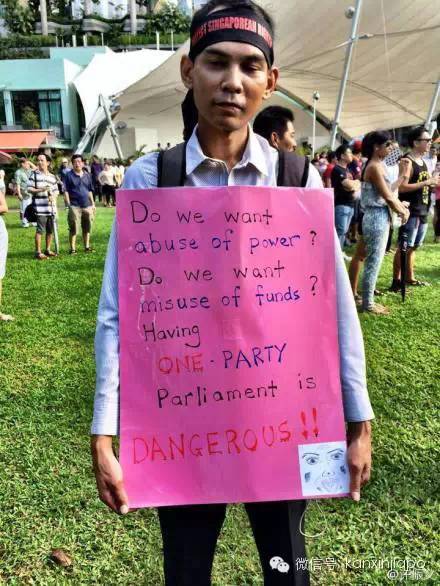 SINGAPOREAN
Do we want
abuse of power?
Do we want
misuse of funds?
Having
ONE-PARTY
Parliament is
DANGEROUS!!
微信号: kanxinjiapo